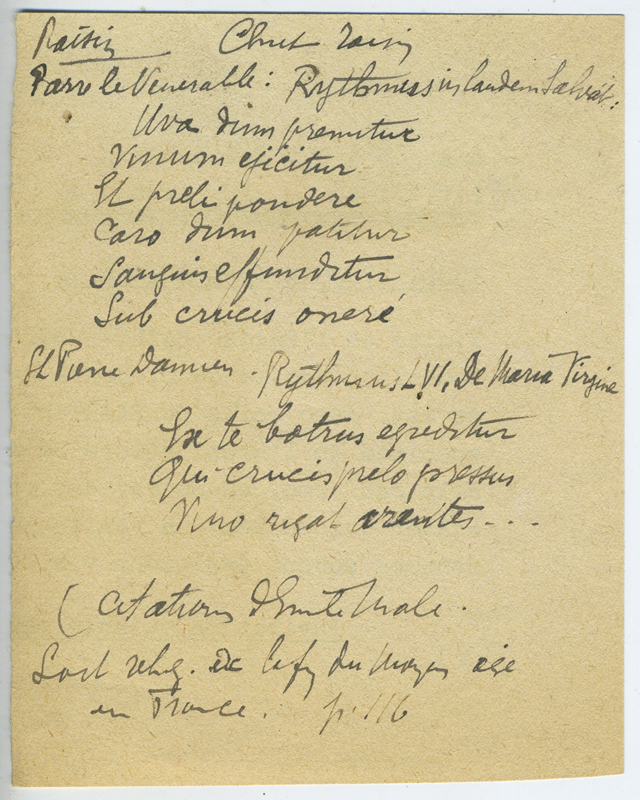 Raisin Christ raisin
Pierre le Venerable: Rythmus in laudem Salvat:
Uva dum premitur
Vinum ejicitur
Et preli pondere
Caro dum patitur
Sanguis effunditur
Sub crucis onere
St Pierre Damien. Rythmus LVI, De Maria Virgine
Ex te botrus egreditur
Qui crucis prelo pressus
Vino rigat arentes...
(citations d'Emile Male.
L'art relig. de la fin du Moyen age
en France. p. 116